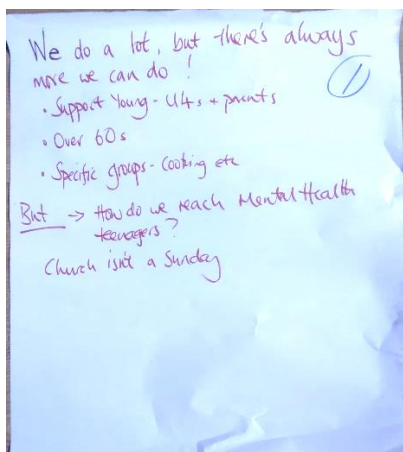 We do a lot, but there's always
more we can do!
1
• Support Young - U4s + parents
• Over 60s
• Specific groups - Cooking etc
But → How do we reach Mental Health
teenagers?
Church isn't a Sunday